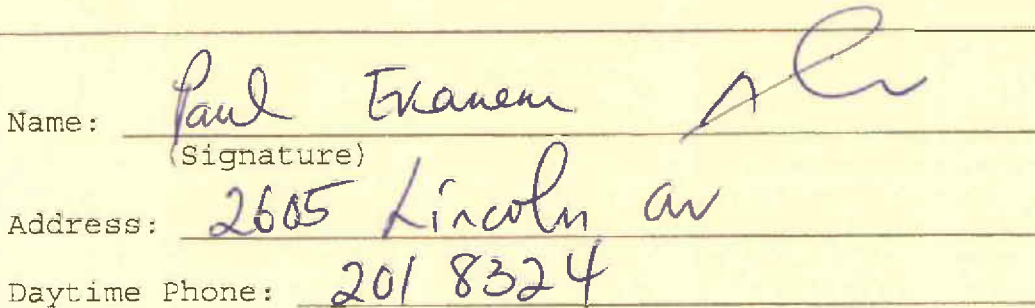 Name: Paul Ekanem
(Signature)
Address: 2605 Lincoln av
Daytime Phone: 201 8324